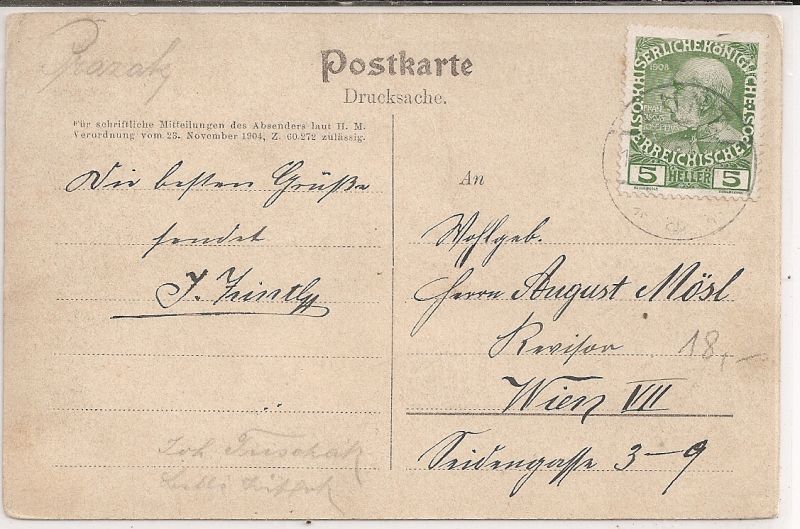 Postkarte
Drucksache.
Für schriftliche Mitteilungen des Absenders laut H. M.
Verordnung vom 23. November 1904, Z. 60.272 zulässig.
Die besten Grüße
sendet
J.
An
Wohlgeb.
Herrn August Mösl
Revisor
Wien VII
Seidengasse 3-9
18,-
Joh.
KAISERLICHE KÖNIGLICHE ÖSTERREICHISCHE POST
1908
5 HELLER 5